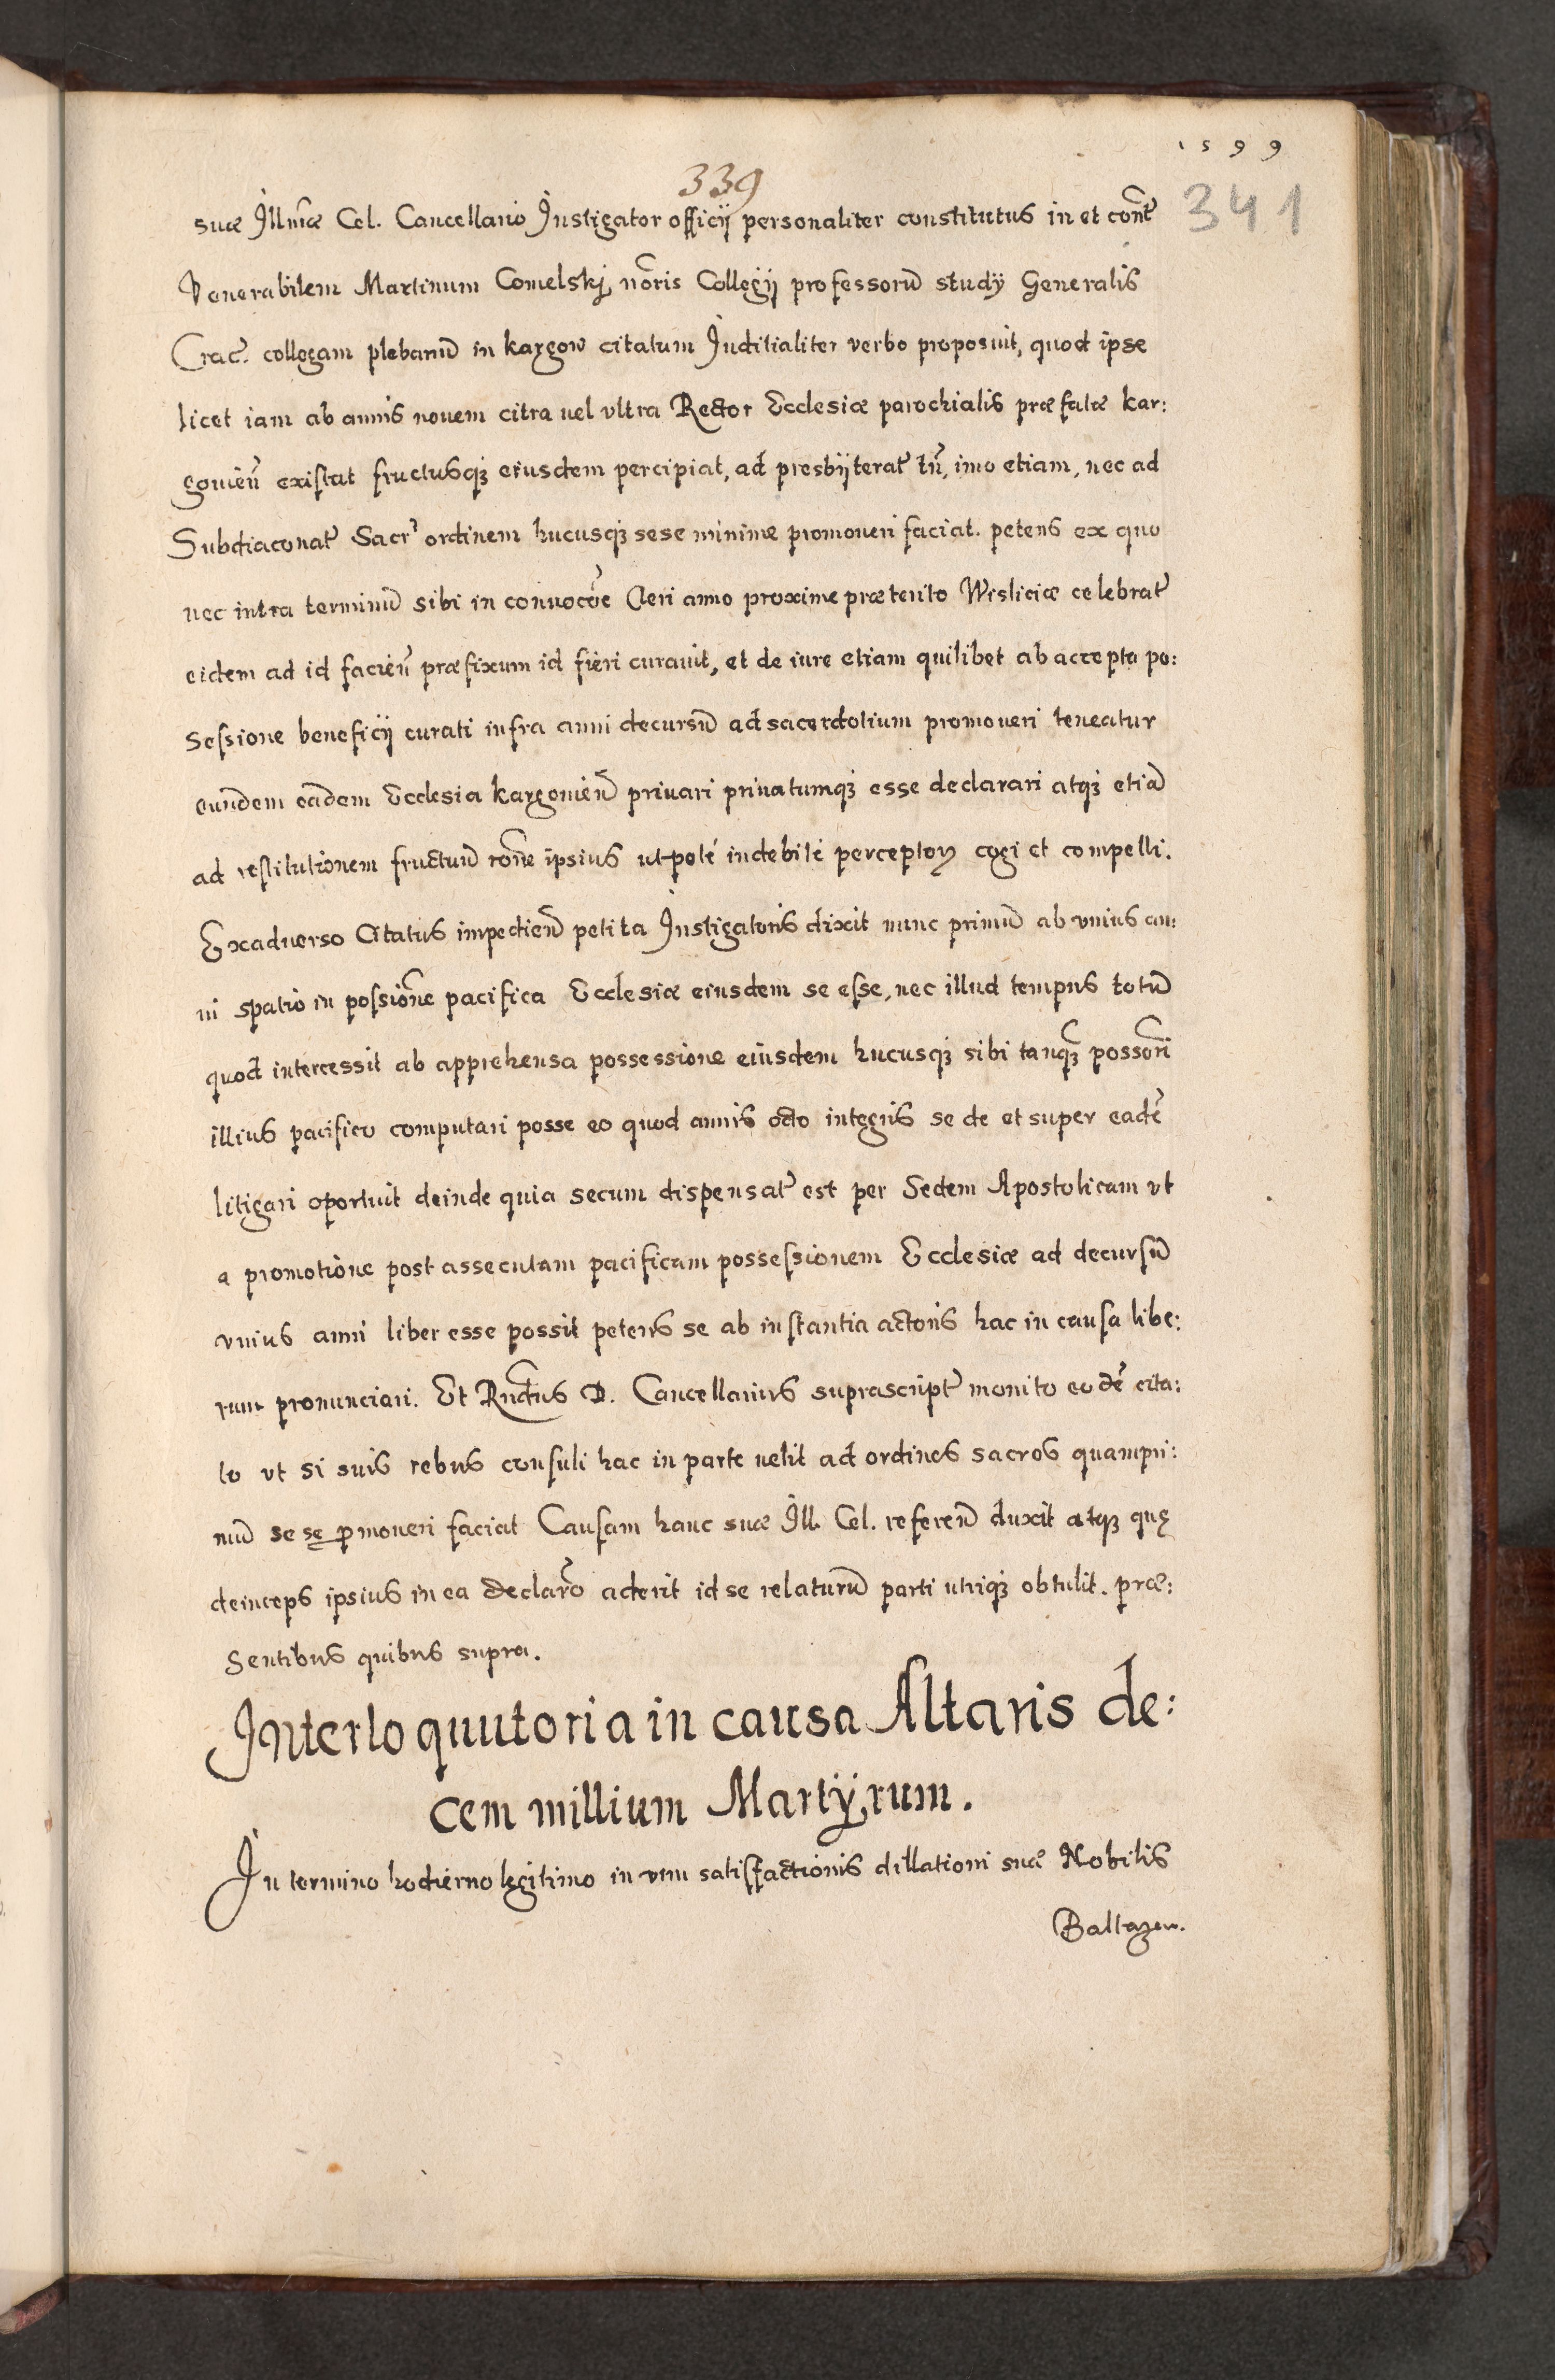 1599
339
341
suæ Illm̃æ Cel. Cancellario Instigator officij personaliter constitutus in et contr̃
Venerabilem Martinum Comelskj, noĩris Collegij professorũ study Generalis
Crac̃. collegam plebanũ in kargow citatum Juditialiter verbo proposuit, quod ipse
licet iam ab annis nouem citra uel vltra Rector Ecclesiæ parochialis præfatæ kar:
gouieñ existat fructusqꝫ eiusdem percipiat, ad presbijterat̃ tñ, imo etiam, nec ad
Subdiaconat̃ Sacr̃ ordinem hucusqꝫ sese minime promoueri faciat. petens ex quo
nec intra terminũ sibi in conuocõe Cleri anno proxime præterito Wisliciæ celebrat̃
eidem ad id facieñ præfixum id fieri curauit, et de iure etiam quilibet ab accepta po:
sessione beneficij curati infra anni decursũ ad sacerdotium promoueri teneatur
eundem eadem Ecclesia kargouieñ priuari priuatumqꝫ esse declarari atqꝫ etiã
ad restitutionem fructuũ rõne ipsius ut pote indebite perceptoꝝ cogi et compelli.
Exaduerso Citatus impedieñ petita Instigatoris dixit nunc primũ ab vnius an:
ni spatio in possiõne pacifica Ecclesiæ eiusdem se esse, nec illud tempus totũ
quod intercessit ab apprehensa possessione eiusdem hucusqꝫ sibi tanqꝫ̃ possõri
illius pacifico computari posse eo quod annis octo integris se de et super eadẽ
litigari oportuit deinde quia secum dispensat̃ est per Sedem Apostolicam vt
a promotione post assecutam pacificam possessionem Ecclesiæ ad decursũ
vnius anni liber esse possit petens se ab instantia actoris hac in causa libe:
rum pronunciari. Et Rnd̃us D. Cancellarius suprascript̃ monito eodẽ cita:
to vt si suis rebus consuli hac in parte uelit ad ordines sacros quampri:
mũ se se ꝓmoueri faciat Causam hanc suæ Ill. Cel. refereñ duxit atqꝫ quę
deinceps ipsius in ea declarõ aderit id se relaturũ parti utriqꝫ obtulit. præ:
sentibus quibus supra.
Interloquutoria in causa Altaris de:
cem millium Martÿrum.
In termino hodierno legitimo in vim satisfactionis dillationi suæ Nobilis
Baltazar.